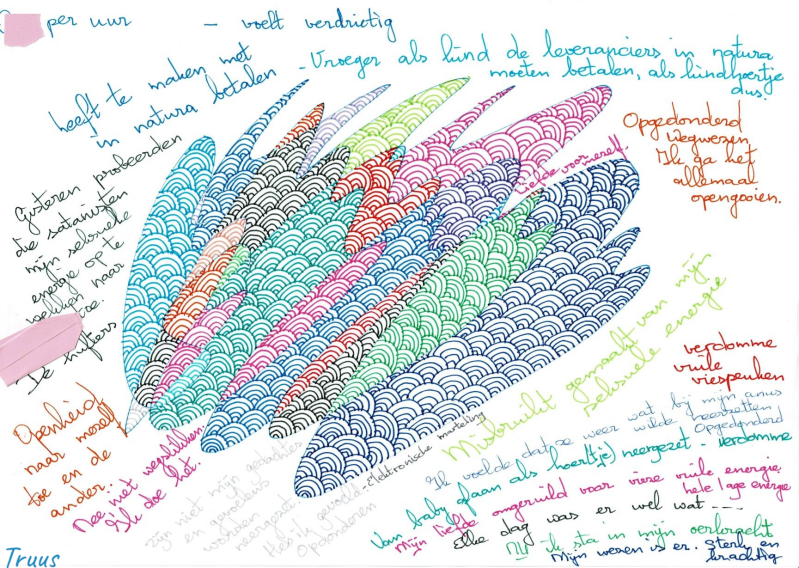 per uur - voelt verdrietig
heeft te maken met
in natura betalen
- Vroeger als kind de leveranciers in natura
moeten betalen, als kindhoertje
dus.
Opgedonderd
Wegwezen
Ik ga het
allemaal
opengooien.
liefde voor mezelf.
Gisteren probeerden
die satanisten
mijn seksuele
energie op te
wekken naar
toe.
De hufters
Openheid
naar mezelf
toe en de
ander.
Nee niet wegstibben.
Ik doe het.
zijn niet mijn gedachtes
en gevoelens
worden
neergezet.
Opdonderen
- Elektronische marketing
Misbruikt gemaakt van mijn
seksuele energie
verdomme
vuile
viespeuken
Ik voelde dat ze weer wat bij mijn anus
wilde neerzetten
Opgedonderd
Van baby af aan als hoer(tje) neergezet - verdomme
Mijn liefde omgeruild voor vieze vuile energie.
hele lage energie
Elke dag was er wel wat ----
Ik sta in mijn oerkracht
Mijn wezen is er. Sterk en
krachtig
Truus